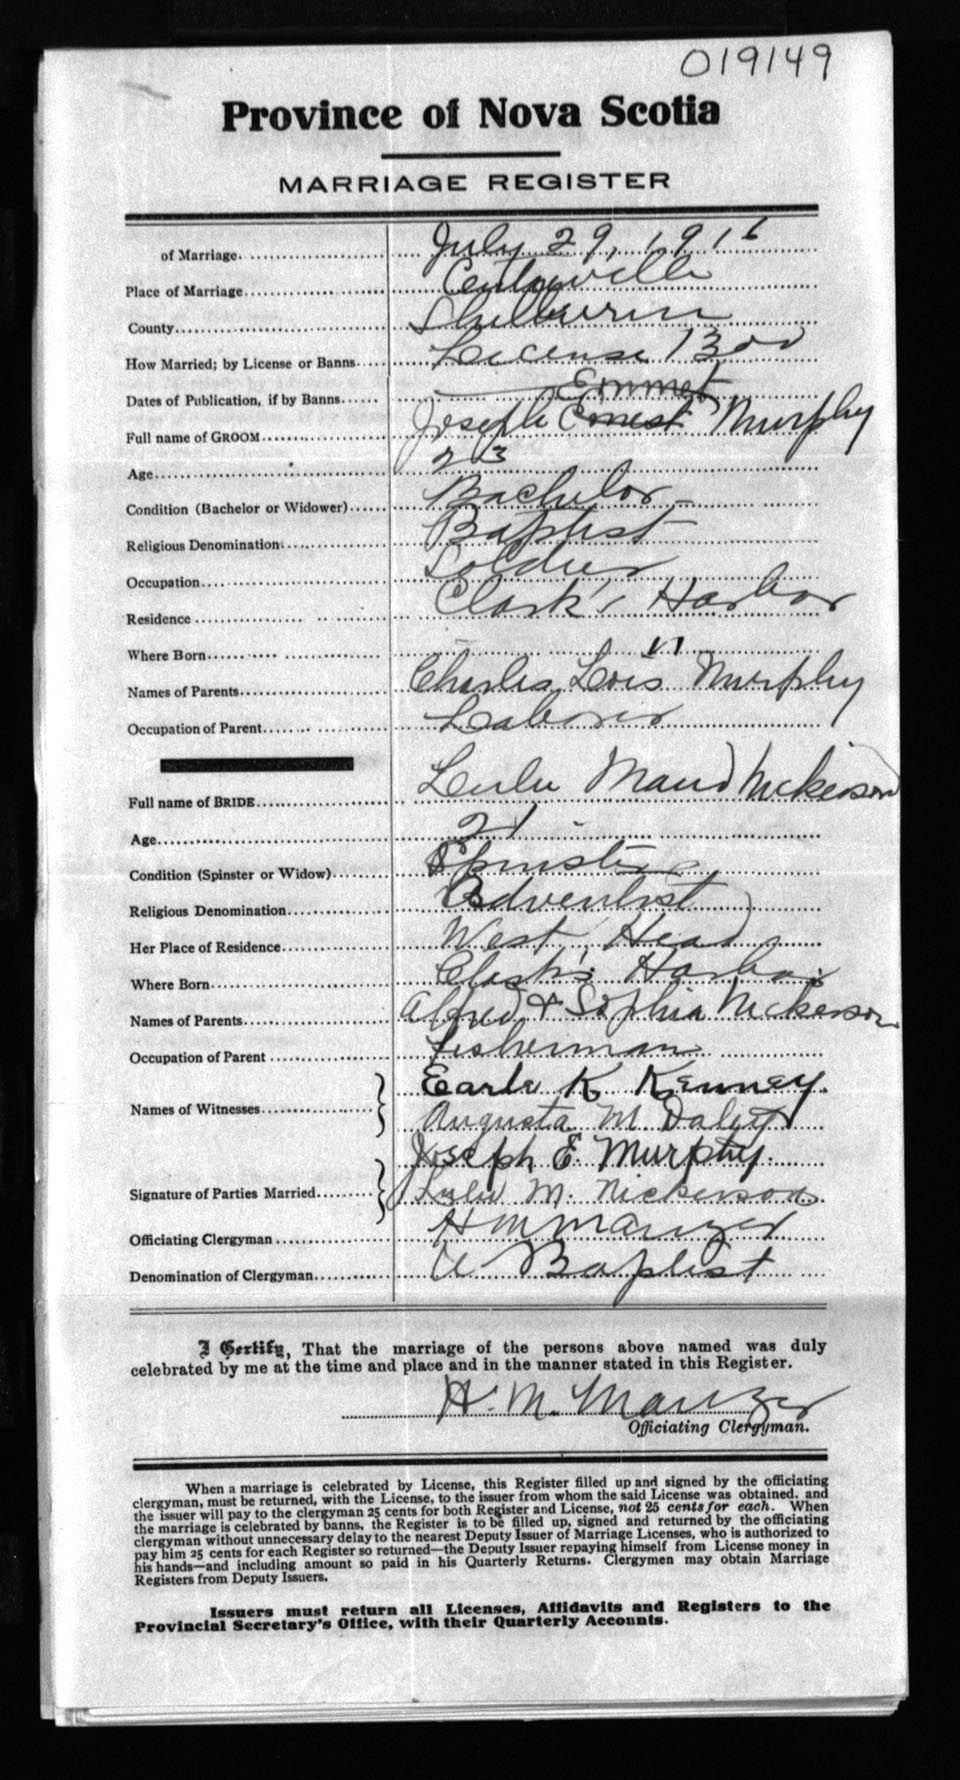 019149
Province of Nova Scotia
MARRIAGE REGISTER
of Marriage July 29, 1916
Place of Marriage Centreville
County Shelburne
How Married; by License or Banns License 1300
Dates of Publication, if by Banns
Emmet
Full name of GROOM Joseph Ernest Murphy
Age 23
Condition (Bachelor or Widower) Bachelor
Religious Denomination Baptist
Occupation Soldier
Residence Clark's Harbor
Where Born "
Names of Parents Charles Lois Murphy
Occupation of Parent Laborer
Full name of BRIDE Lulu Maud Nickerson
Age 21
Condition (Spinster or Widow) Spinster
Religious Denomination Adventist
Her Place of Residence West Head
Where Born Clark's Harbor
Names of Parents Alfred + Sophia Nickerson
Occupation of Parent Fisherman
Names of Witnesses Earle K Kenney.
Augusta M
Signature of Parties Married Joseph E. Murphy.
Lulu M. Nickerson
Officiating Clergyman H M Manzer
Denomination of Clergyman U Baptist
I Certify, That the marriage of the persons above named was duly
celebrated by me at the time and place and in the manner stated in this Register.
H. M. Manzer
Officiating Clergyman.
When a marriage is celebrated by License, this Register filled up and signed by the officiating
clergyman, must be returned, with the License, to the issuer from whom the said License was obtained, and
the issuer will pay to the clergyman 25 cents for both Register and License, not 25 cents for each. When
the marriage is celebrated by banns, the Register is to be filled up, signed and returned by the officiating
clergyman without unnecessary delay to the nearest Deputy Issuer of Marriage Licenses, who is authorized to
pay him 25 cents for each Register so returned—the Deputy Issuer repaying himself from License money in
his hands—and including amount so paid in his Quarterly Returns. Clergymen may obtain Marriage
Registers from Deputy Issuers.
Issuers must return all Licenses, Affidavits and Registers to the
Provincial Secretary's Office, with their Quarterly Accounts.